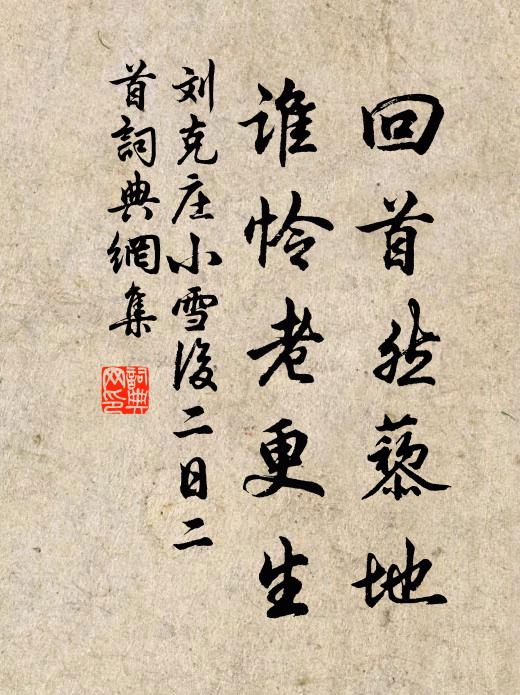 回首然藜地
谁怜老更生
刘克庄小雪後二日二
首詞典網集
詞典
网印